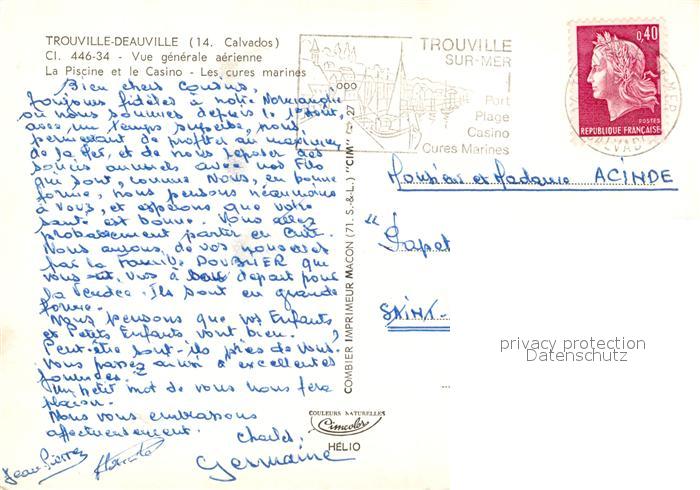 TROUVILLE-DEAUVILLE (14. Calvados)
Cl. 446-34 - Vue générale aérienne
La Piscine et le Casino - Les cures marines
Bien chers Cousins,
Toujours fidèles à notre Normandie
où nous sommes depuis le 1er août,
avec un temps superbe, nous
permettant de profiter au maximum
de la mer, et de nous reposer des
soucis annuels, avec nos Fils
qui sont, comme Nous, en bonne
forme, nous pensons néanmoins
à Vous, et espérons que votre
santé est bonne. Vous allez
probablement partir en Cure.
Nous avons de vos nouvelles
par la Famille DOUBLIER qui
vous vus à départ pour
la Vendée. Ils sont en grande
forme.
Nous pensons que vos Enfants
et Petits Enfants vont bien.
Peut-être sont-ils près de Vous.
Vous passez ainsi d'excellentes
journées.
Un petit mot de vous nous fera
plaisir.
Nous vous embrassons
affectueusement.
Charles,
Germaine
Jean-Pierre
COMBIER IMPRIMEUR MACON (71. S.-&-L.) "CIM"
COULEURS NATURELLES
Cimcolor
HÉLIO
TROUVILLE
SUR-MER
Port
Plage
Casino
Cures Marines
0,40
POSTES
REPUBLIQUE FRANÇAISE
Monsieur et Madame ACINDE
"Papet
SAINT-
privacy protection
Datenschutz